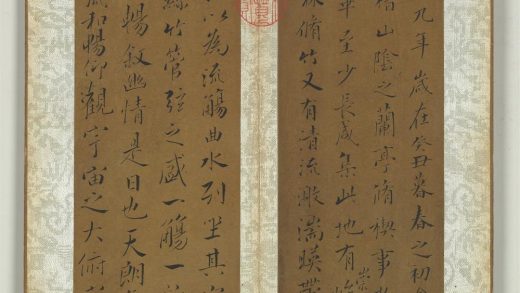 九年歲在癸丑暮春之初
稽山陰之蘭亭脩禊事
畢至少長咸集此地有
崇
林脩竹又有清流激湍暎帶
以為流觴曲水列坐其
絲竹管弦之盛一觴一
暢敘幽情是日也天朗
風和暢仰觀宇宙之大俯